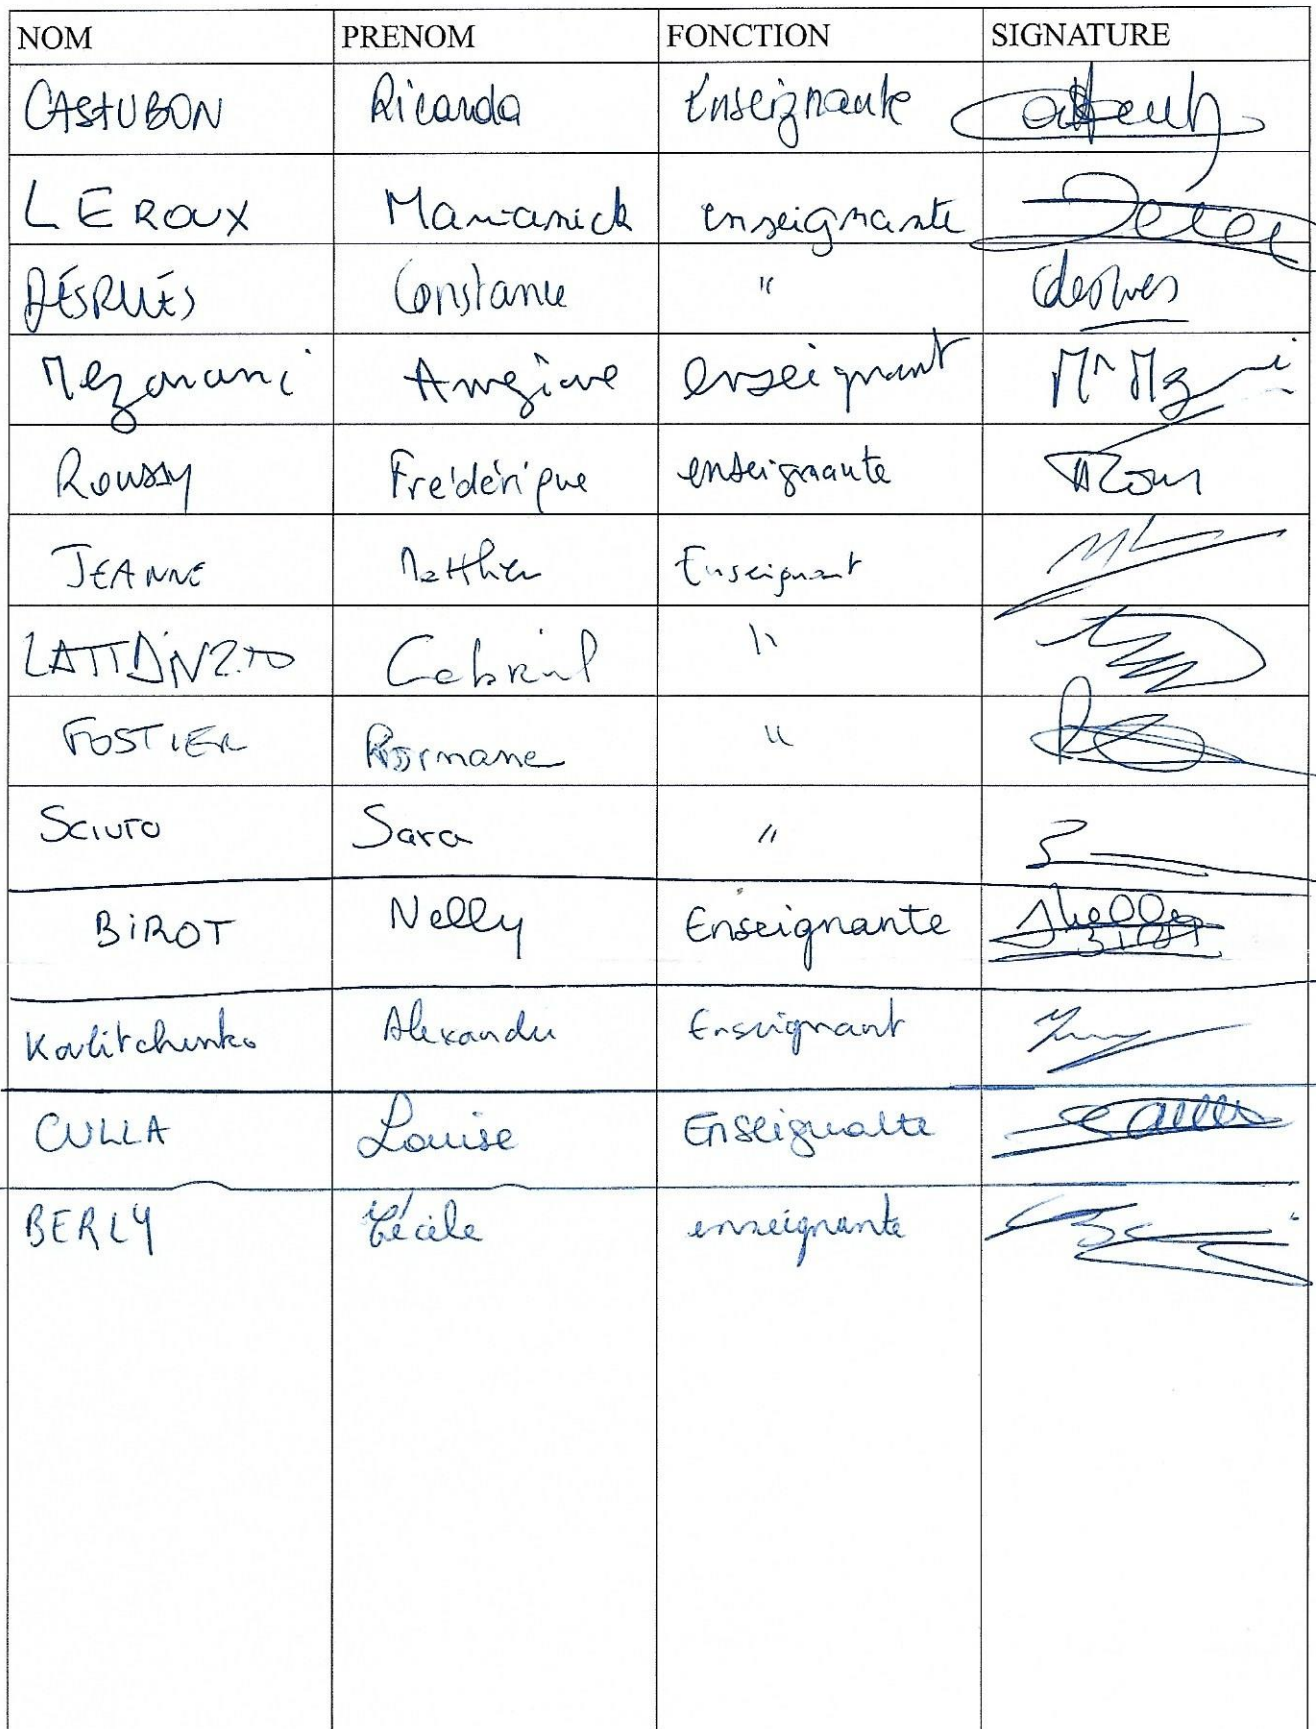 NOM PRENOM FONCTION SIGNATURE
CASTUBON Ricarda Enseignante
LE ROUX Mariannick enseignante
DÉSRUÉS Constance "
Mezonani enseignant Mr
Roussy Frédérique enseignante
JEANNE Matthieu Enseignant
LATTANZIO Gabriel "
FOSTIER Rosemane "
SCIUTO Sara "
BIROT Nelly Enseignante Nelly BIROT
Kovlitchenko Alexandre Enseignant
CULLA Louise Enseignante
BERLY Cécile enseignante